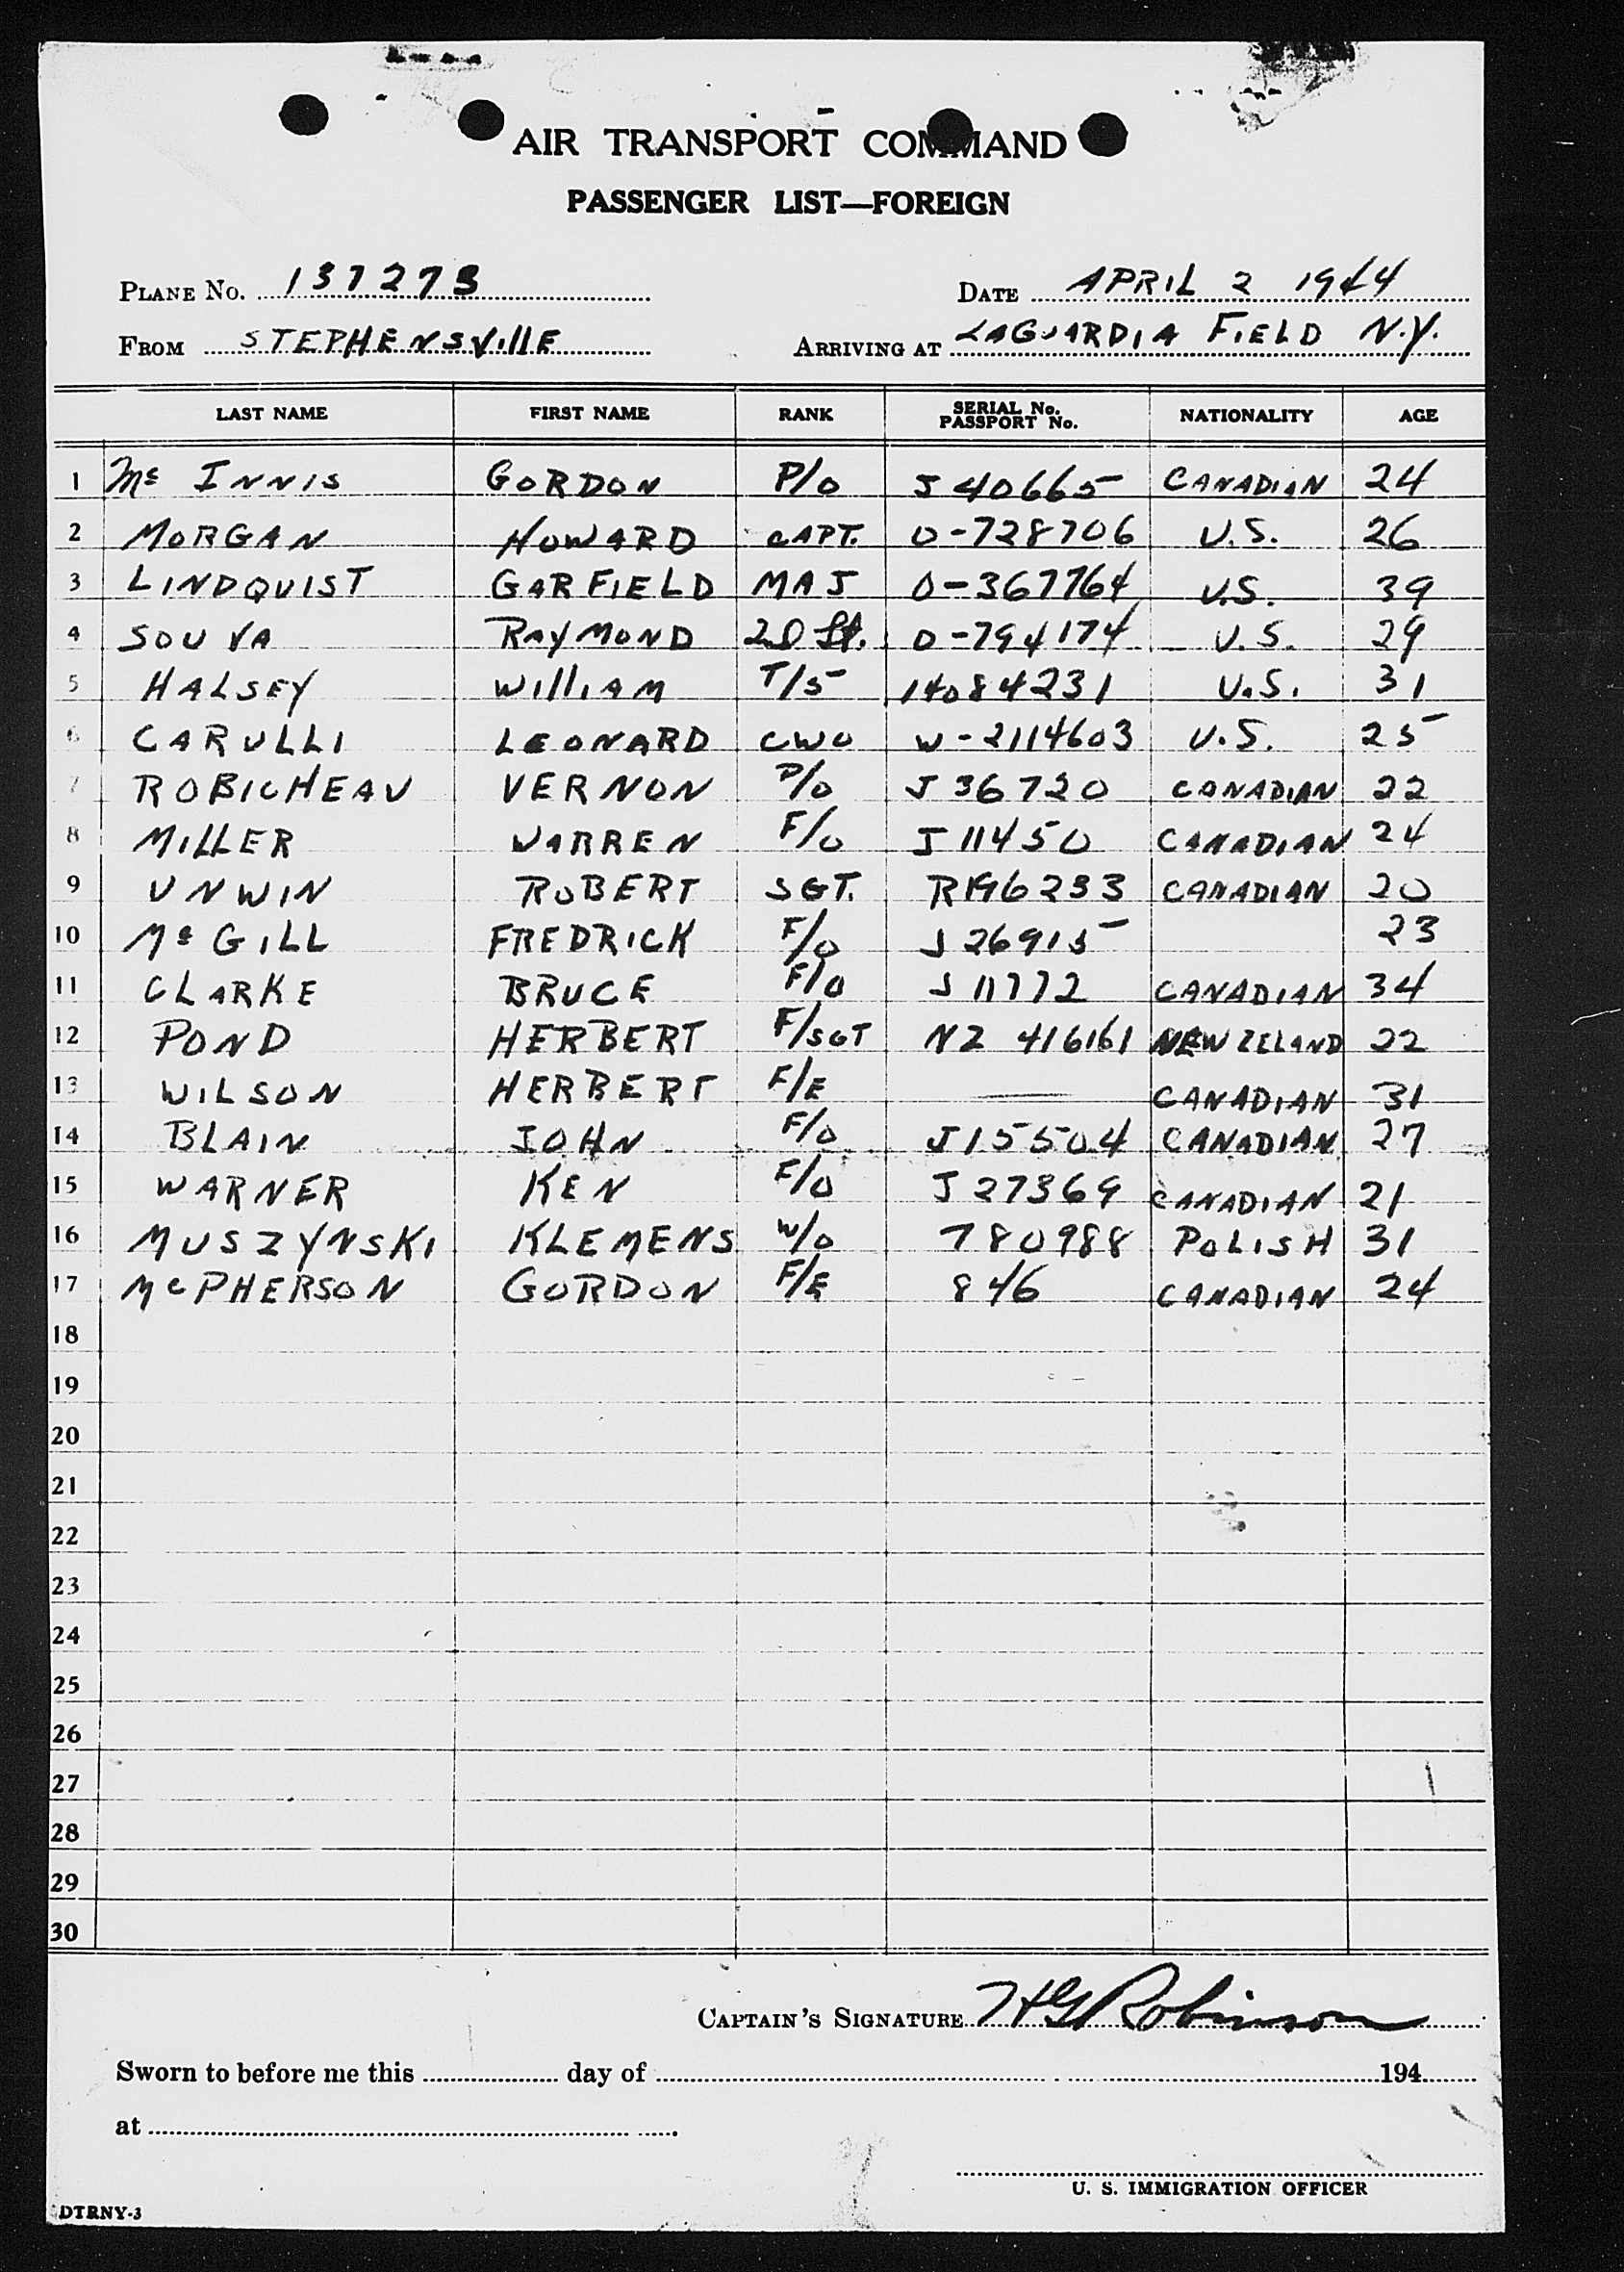 AIR TRANSPORT COMMAND
PASSENGER LIST—FOREIGN
PLANE No. 137273 DATE APRIL 2 1944
FROM STEPHENSVIllE ARRIVING AT LAGUARDIA FIELD N.Y.
LAST NAME FIRST NAME RANK SERIAL No. PASSPORT No. NATIONALITY AGE
1 Mc INNIS GORDON P/O J 40665 CANADIAN 24
2 MORGAN HOWARD CAPT. O-728706 U.S. 26
3 LINDQUIST GARFIELD MAJ O-367764 U.S. 39
4 SOUVA RAYMOND 2D Lt. O-794174 U.S. 29
5 HALSEY WIllIAM T/5 14084231 U.S. 31
6 CARULLI LEONARD CWO W-2114603 U.S. 25
7 ROBICHEAU VERNON P/O J 36720 CANADIAN 22
8 MILLER WARREN F/O J 11450 CANADIAN 24
9 UNWIN ROBERT SGT. R196233 CANADIAN 20
10 Mc GILL FREDRICK F/O J 26915 23
11 CLARKE BRUCE F/O J 11772 CANADIAN 34
12 POND HERBERT F/SGT NZ 416161 NEW ZELAND 22
13 WILSON HERBERT F/E — CANADIAN 31
14 BLAIN JOHN F/O J15504 CANADIAN 27
15 WARNER KEN F/O J 27369 CANADIAN 21
16 MUSZYNSKI KLEMENS W/O 780988 POLISH 31
17 McPHERSON GORDON F/E 846 CANADIAN 24
18
19
20
21
22
23
24
25
26
27
28
29
30
CAPTAIN'S SIGNATURE HG Robinson
Sworn to before me this day of 194
at
U. S. IMMIGRATION OFFICER
DTRNY-3